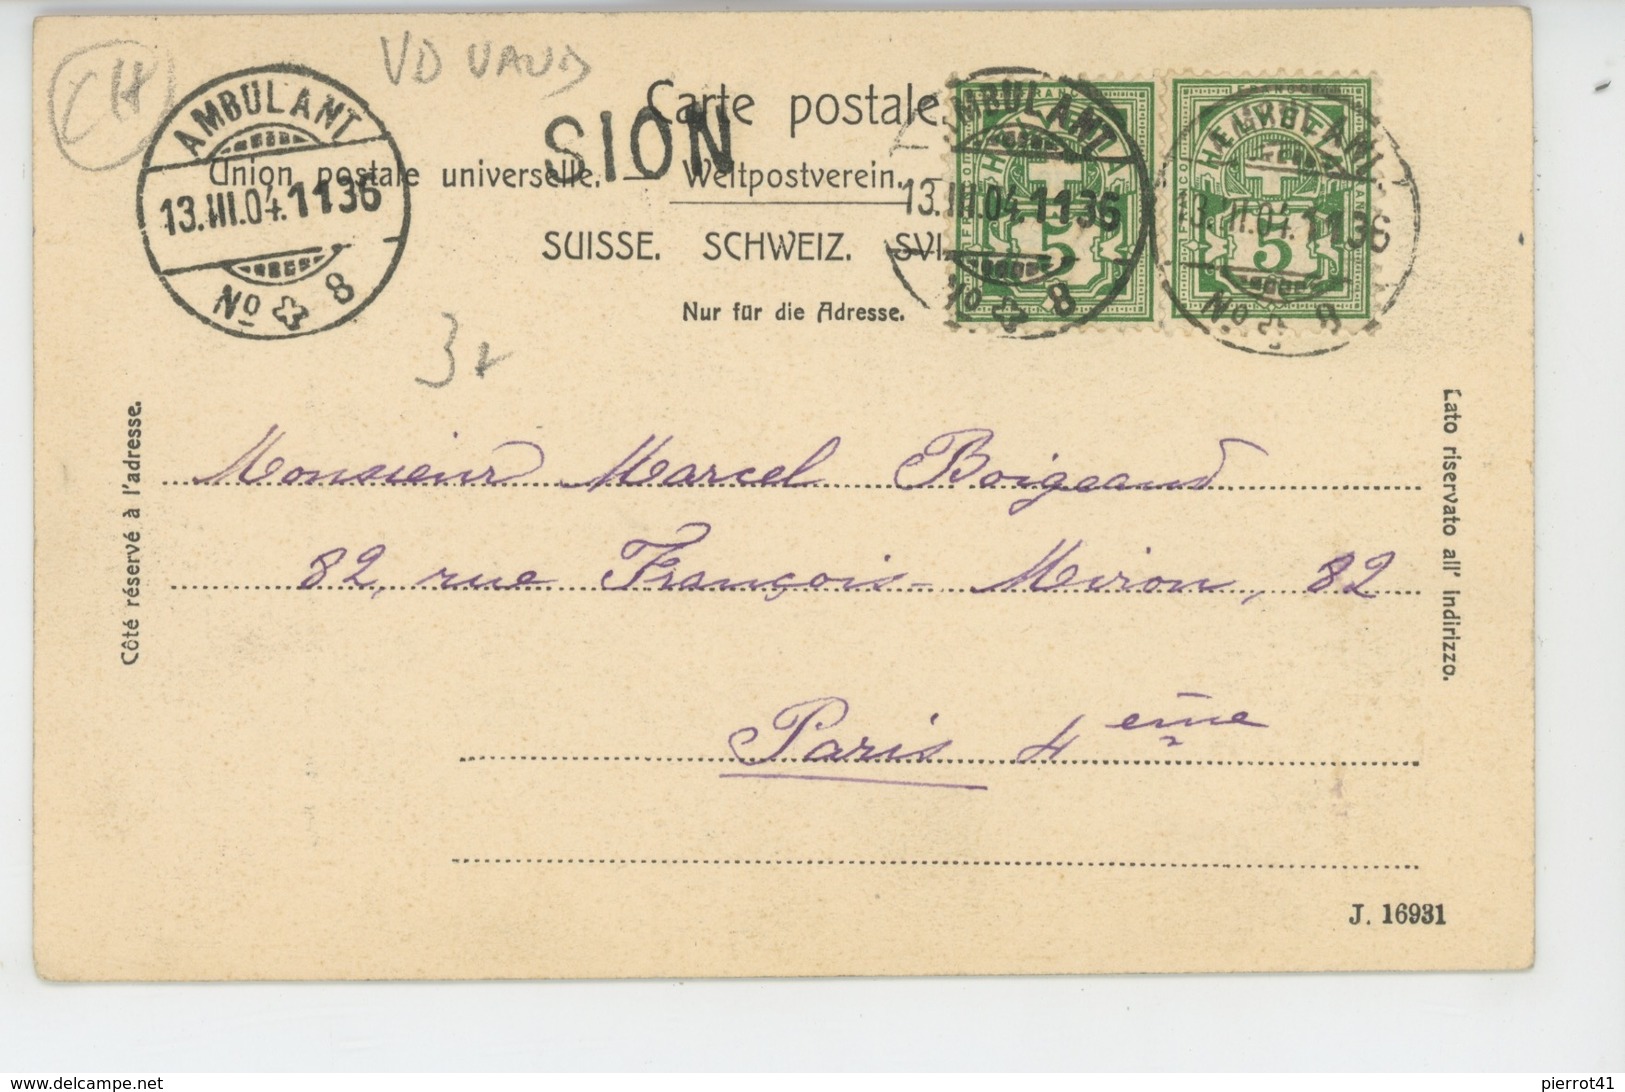 CH
VD VAUD
Carte postale.
SION
Union postale universelle. — Weltpostverein. —
SUISSE. SCHWEIZ. SVI
Nur für die Adresse.
AMBULANT
13.III.04.1136
No 8
AMBULANT
13.III.04.1136
No 8
FRANCO
5
13.III.04.1136
No 8
FRANCO
5
3
Côté réservé à l'adresse.
Lato riservato all' indirizzo.
Monsieur Marcel Boigeaud
82, rue François-Miron, 82
Paris 4eme
J. 16931
delcampe.net
pierrot41